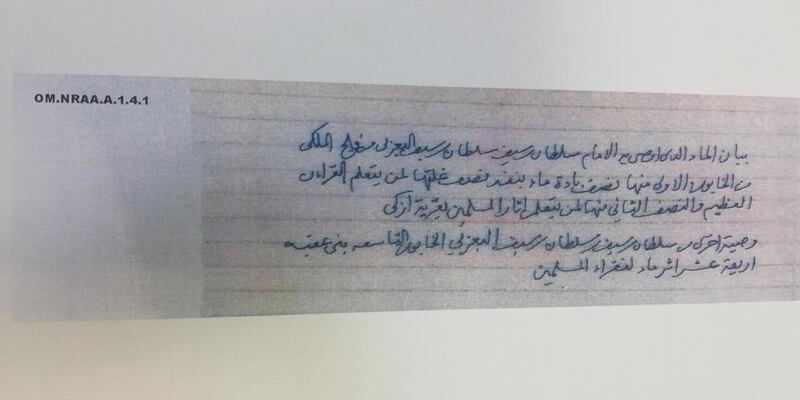 OM.NRAA.A.1.4.1
بيان الماء الذي اوصى به الامام سلطان بن سيف بن سلطان بن سيف اليعربي من فلج الملكي
من الخابورة الاولى منها نصف بادة ماء ينفذ نصف غلتها لمن يتعلم القرآن
العظيم والنصف الثاني منها لمن يتعلم اثار المسلمين بقرية ازكي
وصية اخرى من سلطان بن سيف بن سلطان بن سيف اليعربي الخابورة التاسعه بني عقبه
اربعة عشر اثر ماء لفقراء المسلمين